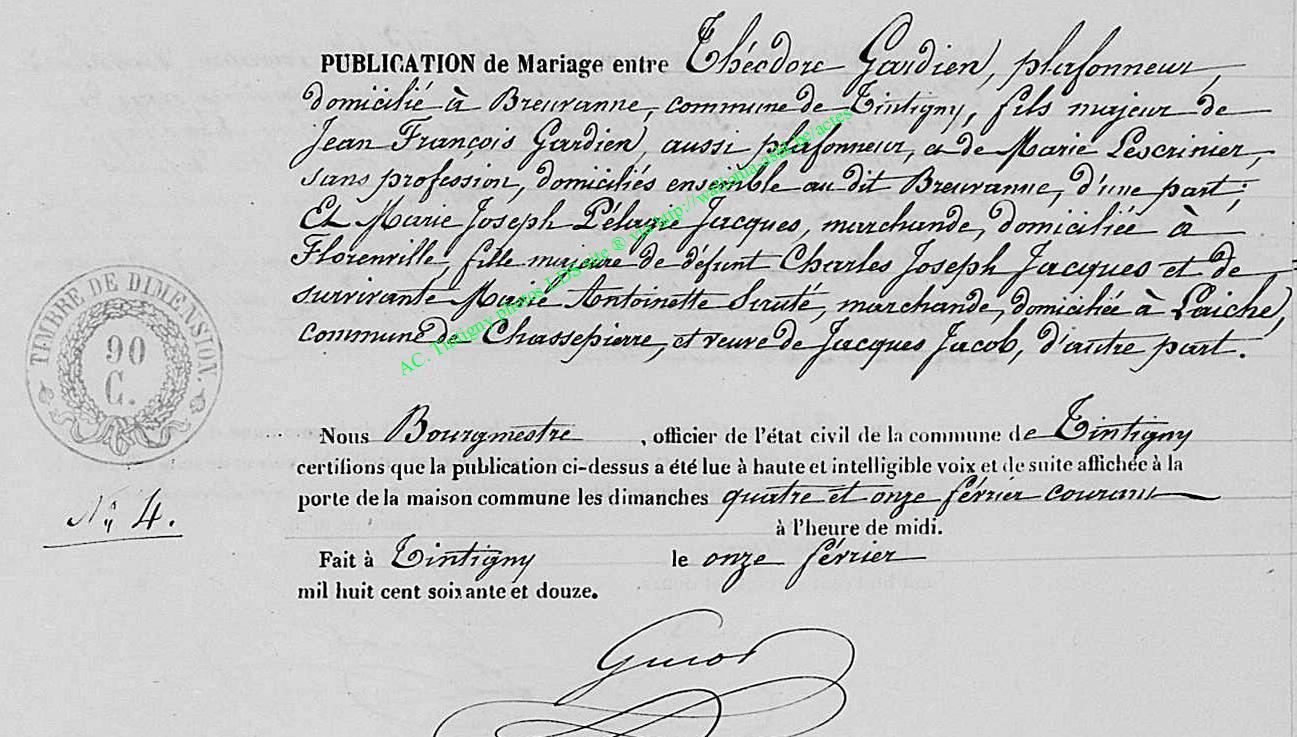 PUBLICATION de Mariage entre Théodore Gardien, plafonneur,
domicilié à Breuvanne, commune de Tintigny, fils majeur de
Jean François Gardien, aussi plafonneur, et de Marie Lescrinier,
sans profession, domiciliés ensemble au dit Breuvanne, d'une part;
Et Marie Joseph Pélagie Jacques, marchande, domiciliée à
Florenville, fille majeure de défunt Charles Joseph Jacques et de
survivante Marie Antoinette Scuté, marchande, domiciliée à Laiche,
commune de Chassepierre, et veuve de Jacques Jacob, d'autre part.
AC. Tintigny photos LDS site ® via http://wallonia-asbl.be/actes
TIMBRE DE DIMENSION.
90
C.
Nous Bourgmestre, officier de l'état civil de la commune de Tintigny
certifions que la publication ci-dessus a été lue à haute et intelligible voix et de suite affichée à la
porte de la maison commune les dimanches quatre et onze février courant
N° 4.
à l'heure de midi.
Fait à Tintigny le onze février
mil huit cent soixante et douze.